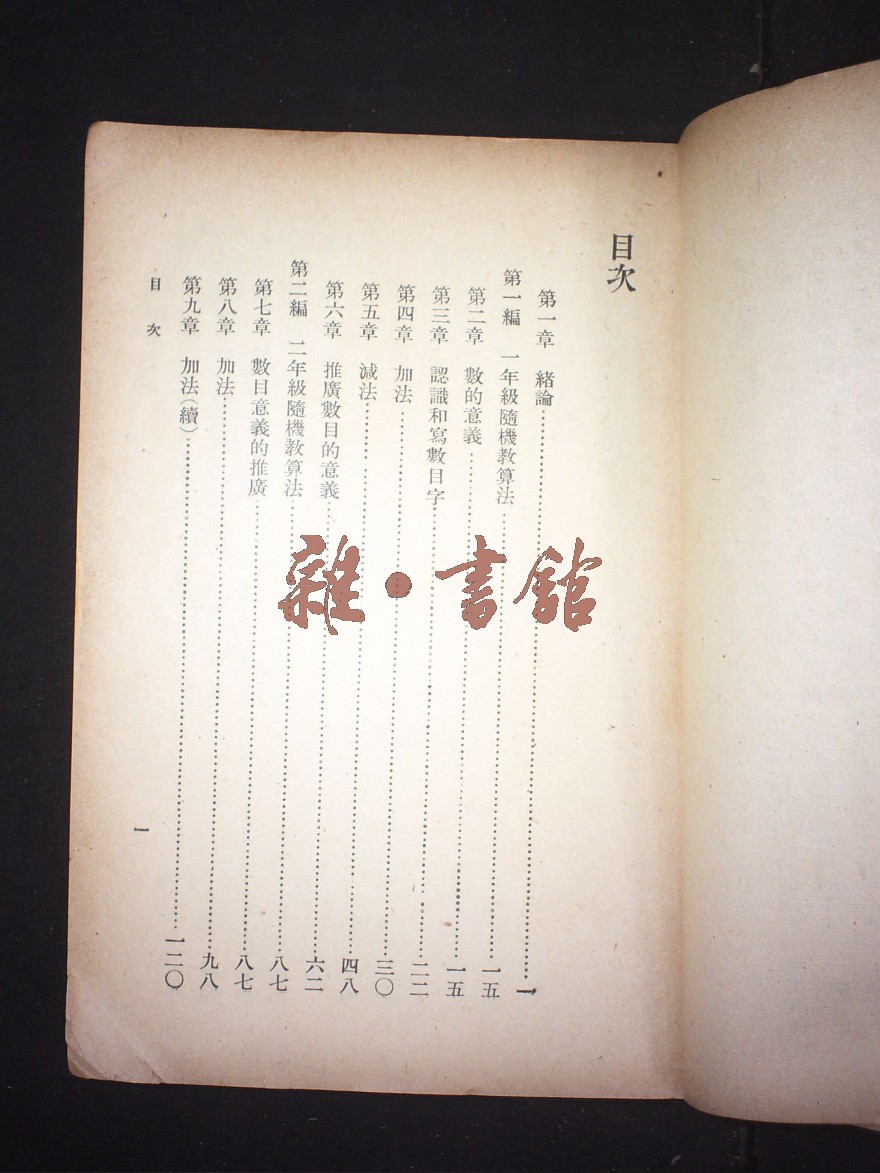 目次
第一章　緒論……一
第一編　一年級隨機教算法……一五
第二章　數的意義……一五
第三章　認識和寫數目字……二二
第四章　加法……三〇
第五章　減法……四八
第六章　推廣數目的意義……六二
第二編　二年級隨機教算法……八七
第七章　數目意義的推廣……八七
第八章　加法……九八
第九章　加法（續）……一二〇
目次
一
雜·書館